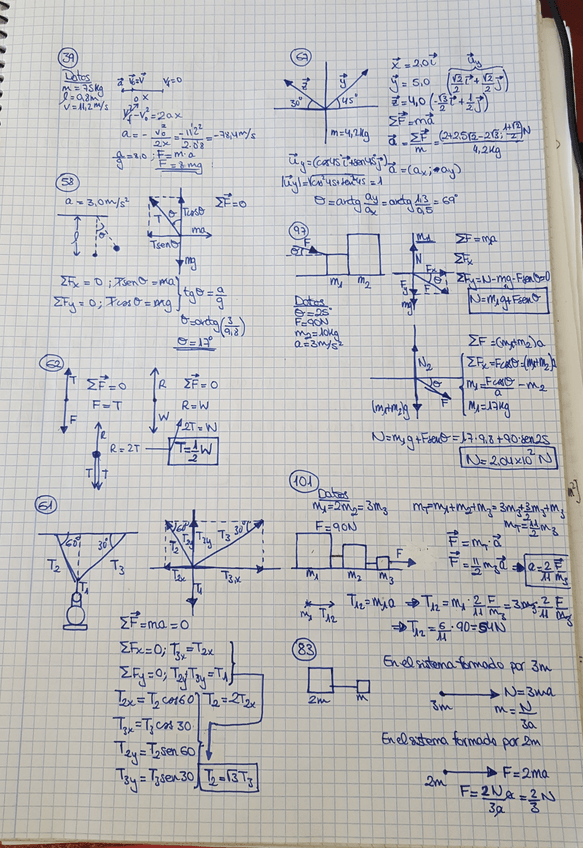 39
Datos
m = 75kg
l = 0,8m
v = 11,2 m/s
a⃗ v⃗₀=v⃗ v_f=0
0 x
v_f² - v₀² = 2ax
a = - v₀²/2x = -11'2²/2·0'8 = -78,4 m/s
a/g = 8,0 ; F = m·a
F = 8mg
58
a = 3,0 m/s²
l θ
T θ Tcosθ
Tsenθ ma
mg
ΣF⃗=0
ΣFx = 0 ; Tsenθ = ma
ΣFy = 0 ; Tcosθ = mg
tgθ = a/g
θ = arctg (3/9,8)
θ = 17°
62
T F
ΣF⃗=0
F = T
R W
ΣF⃗=0
R = W
R T T
R = 2T
2T = W
T = 1/2 W
61
60° 30°
T₂ T₃
T₁
60° 30°
T₂ T₂y T₃y T₃
T₂x T₃x
T₁
ΣF⃗ = ma = 0
ΣFx = 0; T₃x = T₂x
ΣFy = 0; T₂y+T₃y = T₁
T₂x = T₂cos60
T₂ = 2T₂x
T₃x = T₃cos30
T₂y = T₂sen60
T₃y = T₃sen30
T₂ = √3T₃
67
z⃗ y⃗
30° 45°
m = 4,2kg
x⃗ = 2,0 i⃗
u⃗y
y⃗ = 5,0 (√2/2 i⃗ + √2/2 j⃗)
z⃗ = 4,0 (-√3/2 i⃗ + 1/2 j⃗)
ΣF⃗ = ma⃗
a⃗ = ΣF⃗/m
4,2kg
u⃗y = (cos45 i⃗ + sen45 j⃗)
a⃗ = (ax, ay)
|u⃗y| = √cos²45+sen²45 = 1
θ = arctg ay/ax = arctg 1,3/0,5 = 69°
97
F
m₁ m₂
Datos
θ = 25°
F = 90N
m₂ = 10kg
a = 3m/s²
m₁
N
Fx
θ
Fy F
mg
ΣF = ma
ΣFx
ΣFy = N - mg - Fsenθ = 0
N = m₁g + Fsenθ
N₂
θ
F
(m₁+m₂)g
ΣF = (m₁+m₂)a
ΣFx = Fcosθ = (m₁+m₂)a
m₁ = Fcosθ/a - m₂
m₁ = 17kg
N = m₁g + Fsenθ = 17·9,8 + 90·sen25
N = 2,04×10² N
101
Datos
m₁ = 2m₂ = 3m₃
F = 90N
m₁ m₂ m₃ F
m_T = m₁+m₂+m₃ = 3m₃+3/2m₃+m₃
m_T = 11/2 m₃
F⃗ = m_T·a⃗
F⃗ = 11/2 m₃a⃗ ⇒ a = 2/11 F⃗/m₃
m₁ T₁₂
T₁₂ = m₁a ⇒ T₁₂ = m₁·2/11 F/m₃ = 3m₃·2/11 F/m₃
⇒ T₁₂ = 6/11·90 = 54N
83
2m m
En el sistema formado por 3m
3m N = 3ma
m = N/3a
En el sistema formado por 2m
2m F = 2ma
F = 2N/3a a = 2/3 N